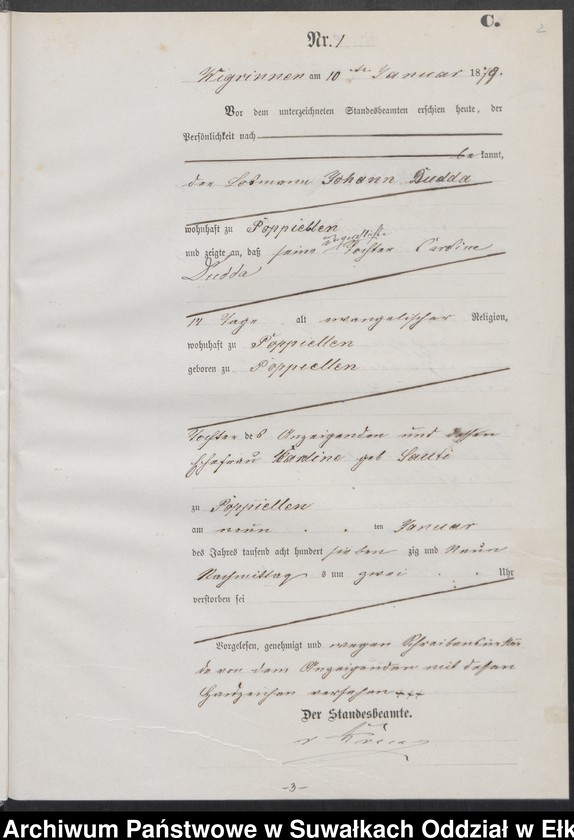 C.
2
Nr. 1
Wigrinnen am 10 ten Januar 1879.
Vor dem unterzeichneten Standesbeamten erschien heute, der
Persönlichkeit nach
be kannt,
der Losmann Johann Dudda
wohnhaft zu Poppiellen
und zeigte an, daß seine Tochter Caroline
Dudda
14 Tage alt evangelischer Religion,
wohnhaft zu Poppiellen
geboren zu Poppiellen
Tochter des Anzeigenden und dessen
Ehefrau Karoline geb
zu Poppiellen
am neun ten Januar
des Jahres tausend acht hundert sieben zig und Neun
Nachmittag s um zwei Uhr
verstorben sei
Vorgelesen, genehmigt und wegen Schreibensunkun
de von dem Anzeigenden mit dessen
Handzeichen versehen +++
Der Standesbeamte.
-3-
Archiwum Państwowe w Suwałkach Oddział w Ełk